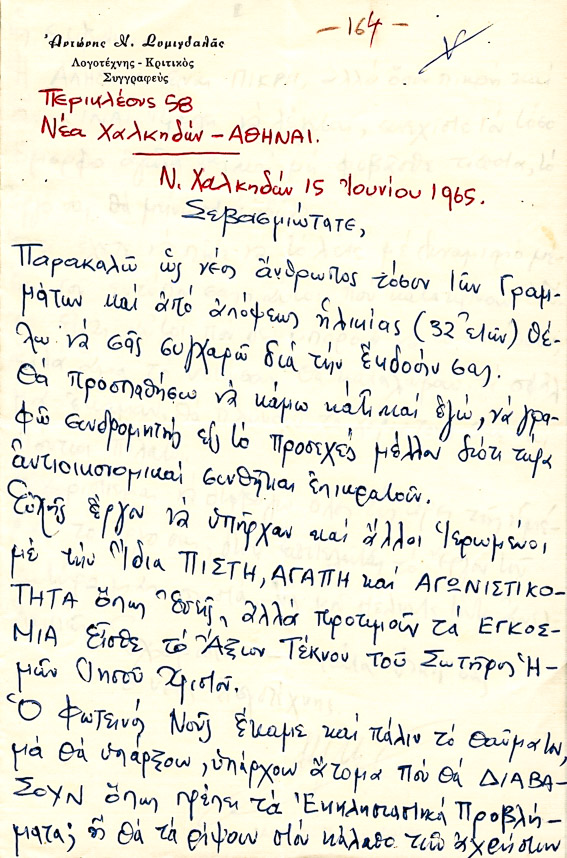 — 164 —
Ἀντώνης Ν. Σομιγδαλᾶς
Λογοτέχνης - Κριτικὸς
Συγγραφεὺς
Περικλέους 58
Νέα Χαλκηδών - ΑΘΗΝΑΙ.
Ν. Χαλκηδών 15 Ἰουνίου 1965.
Σεβασμιώτατε,
Παρακαλῶ ὡς νέος ἄνθρωπος τόσον τῶν Γραμ-
μάτων καὶ ἀπὸ ἀπόψεως ἡλικίας (32 ἐτῶν) θέ-
λω νὰ σᾶς συγχαρῶ διὰ τὴν ἔκδοσίν σας.
Θὰ προσπαθήσω νὰ κάμω κάτι καὶ ἐγώ, νὰ γρα-
φῶ συνδρομητὴς εἰς τὸ προσεχὲς μέλλον διότι τώρα
ἀντιοικονομικαὶ συνθῆκαι ἐπικρατοῦν.
Εὐχῆς ἔργον νὰ ὑπῆρχαν καὶ ἄλλοι Ἱερωμένοι
μὲ τὴν Ἴδια ΠΙΣΤΗ, ΑΓΑΠΗ καὶ ΑΓΩΝΙΣΤΙΚΟ-
ΤΗΤΑ ὅπως Ἐσεῖς, ἀλλὰ προτιμοῦν τὰ ΕΓΚΟΣ-
ΜΙΑ Εἶσθε τὸ Ἄξιων Τέκνον τοῦ Σωτῆρος Ἡ-
μῶν Ἰησοῦ Χριστοῦ.
Ὁ Φωτεινός Νοῦς ἔκαμε καὶ πάλιν τὸ θαῦμα του,
μὰ θὰ ὑπάρξουν, ὑπάρχουν ἄτομα ποὺ θὰ ΔΙΑΒΑ-
ΣΟΥΝ ὅπως πρέπει τὰ Ἐκκλησιαστικὰ Προβλή-
ματα; ἢ θὰ τὰ ρίψουν στὸν κάλαθο τῶν ἀχρήστων